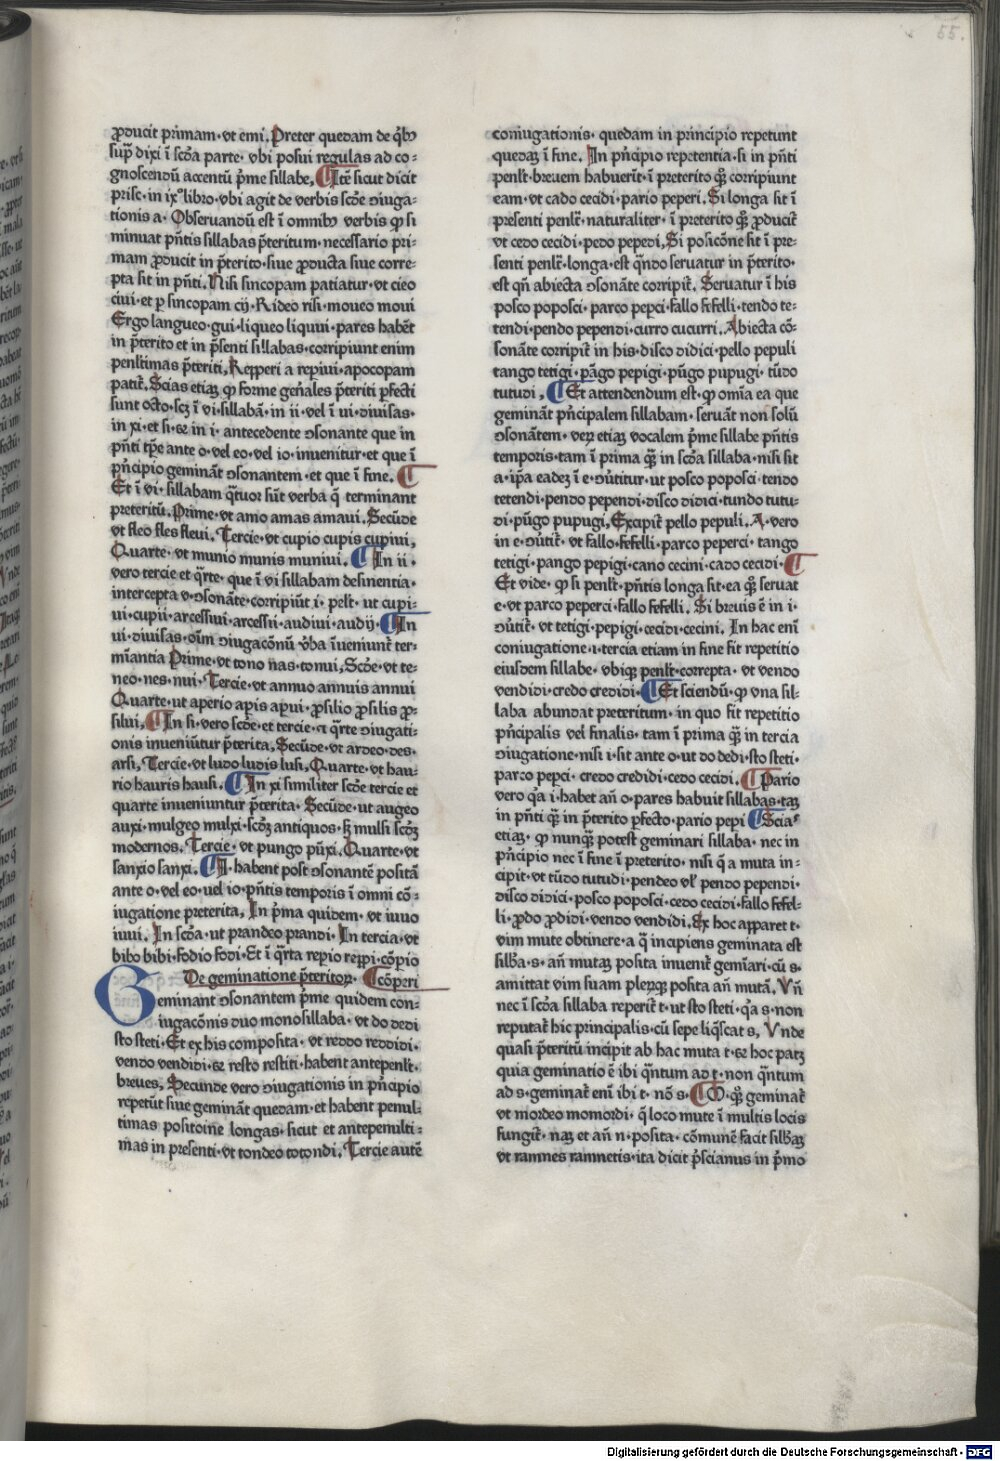 55.
ꝓducit primam·vt emi. Preter quedam de q̇bꝰ
supͣ dixi ī scd̄a parte· vbi posui regulas ad co⸗
gnoscendū accentū p̄me sillabe. ¶ Itē sicut dicit
prisc·in ixº libro·vbi agit de verbis scd̄e ↄiuga⸗
tionis a· Obseruandū est ī omnibꝰ verbis qꝙ si
minuat pn̄tis sillabas p̄teritum·necessario pri⸗
mam ꝓducit in p̄terito·siue ꝓducta siue corre⸗
pta sit in pn̄ti. Nisi sincopam patiatur·vt cieo
ciui·et ꝑ sincopam cij·Rideo risi·moueo moui
Ergo langueo·gui·liqueo liquui·pares habēt
in p̄terito et in p̄senti sillabas·corripiunt enim
penl̄timas p̄teriti. Repperi a repiui·apocopam
patit᷑. Scias etiaꝫ ꝙ forme gen̄ales p̄teriti ꝑfecti
sunt octo·scꝫ ī vi·sillabā·in ii·vel ī ui·diuisas·
in xi·et si·⁊ in i·antecedente ↄsonante que in
pn̄ti tꝑe ante o·vel eo·vel io·inuenitur·et que ī
pn̄cipio gemināt ↄsonantem·et que ī fine. ¶
Et ī vi·sillabam q̇tuor sūt verba q̄ terminant
preteritū. Prime·vt amo amas amaui. Secūde
vt fleo fles fleui. Tercie·vt cupio cupis cupiui,
Quarte·vt munio munis muniui. ¶ In ii·
vero tercie et q̇rte·que ī vi sillabam desinentia·
intercepta v·ↄsonāte·corripiūt i·pelt̄·ut cupi⸗
ui·cupii·arcessiui·arcessii·audiui·audij·¶ In
ui·diuisas·oīm ↄiugacōnū v̇ba īueniunt᷑ ter⸗
mīantia Prime·vt tono nas·tonui, Scd̄e·vt te⸗
neo·nes·nui·Tercie·vt annuo annuis annui
Quarte·ut aperio apis aꝑui·ꝓsilio ꝓsilis ꝓ⸗
silui. ¶ In si·vero scd̄e·et tercie·⁊ q̇rte ↄiugati⸗
onis inueniūtur p̄terita. Secūde·vt ardeo·des·
arsi, Tercie·vt ludo ludis lusi, Quarte·vt hau⸗
rio hauris hausi. ¶ In xi similiter scd̄e tercie et
quarte inueniuntur p̄terita·Secūde·ut augeo
auxi·mulgeo mulxi·scd̄ꝫ antiquos·sꝫ mulsi scd̄ꝫ
modernos. Tercie·vt pungo pūxi. Quarte·vt
sanxio sanxi. ¶ I·habent post ↄsonantē positā
ante o·vel eo·uel io·pn̄tis temporis ī omni cō⸗
iugatione preterita, In p̄ma quidem·vt iuuo
iuui. In scd̄a·ut prandeo prandi·In tercia·vt
bibo bibi·fodio fodi·Et ī q̇rta reꝑio reꝑpi·cōꝑio
De geminatione p̄teritoꝝ· ¶ cōperi
Geminant ↄsonantem p̄me quidem con⸗
iugacōnis duo monosillaba·vt do dedi
sto steti·Et ex his composita·vt reddo reddidi·
vendo vendidi·⁊ resto restiti·habent antepenlt̄·
breues, Secunde vero ↄiugationis in pn̄cipio
repetūt siue gemināt quedam·et habent penul⸗
timas positoine longas·sicut et antepenulti⸗
mas in presenti·vt tondeo totondi. Tercie autē
coniugationis·quedam in principio repetunt
quedaꝫ ī fine. In pn̄cipio repetentia·si in pn̄ti
penlt̄·breuem habuerīt·ī preterito qꝫ corripiunt
eam·vt cado cecidi·pario peperi. Si longa sit ī
presenti penlt̄·naturaliter·ī preterito qꝫ ꝓducit᷑
vt cedo cecidi·pedo pepedi, Si posicōne sit ī pre⸗
senti penlt̄·longa·est qn̄do seruatur in p̄terito·
est qn̄ abiecta ↄsonāte corripit᷑. Seruatur ī his
posco poposci·parco peꝑci·fallo fefelli·tendo te⸗
tendi·pendo pependi·curro cucurri. Abiecta cō⸗
sonāte corripit᷑ in his·disco didici·pello pepuli
tango tetigi·pāgo pepigi·pūgo pupugi·tūdo
tutudi. ¶ Et attendendum est·ꝙ omīa ea que
gemināt pn̄cipalem sillabam·seruāt non solū
ↄsonātem·veꝝ etiaꝫ vocalem p̄me sillabe pn̄tis
temporis·tam ī prima qꝫ in scd̄a sillaba·nisi sit
a·ip̄a eadeꝫ ī e·ↄūtitur·ut posco poposci·tendo
tetendi·pendo pependi·disco didici·tundo tutu⸗
di·pūgo pupugi, Excipit᷑ pello pepuli. A·vero
in e·ↄūtit᷑·vt fallo·fefelli·parco peperci·tango
tetigi·pango pepigi·cano cecini·cado cecidi·¶
Et vide·ꝙ si penlt̄·pn̄tis longa sit·ea qꝫ seruat
e·vt parco peperci·fallo fefelli. Si breuis ē in i·
ↄūtit᷑·vt tetigi·pepigi·cecidi·cecini. In hac enī
coniugatione·i·tercia etiam in fine fit repetitio
eiusdem sillabe·vbiqꝫ penlt̄·correpta·vt vendo
vendidi·credo credidi·¶ Et sciendū·ꝙ vna sil⸗
laba abundat preteritum·in quo fit repetitio
pn̄cipalis vel finalis·tam ī prima qꝫ in tercia
ↄiugatione·nisi·i·sit ante o·ut do dedi·sto steti·
parco peꝑci·credo credidi·cedo cecidi. ¶ Pario
vero q̇a i·habet añ o·pares habuit sillabas·taꝫ
in pn̄ti qꝫ in p̄terito ꝑfecto·pario peꝑi ¶ Scias
etiaꝫ·ꝙ nunqꝫ potest geminari sillaba·nec in
pn̄cipio nec ī fine ī preterito·nisi q̄ a muta in⸗
cipit·vt tūdo tutudi·pendeo vl̄ pendo pependi·
disco didici·posco poposci·cedo cecidi·fallo fefel⸗
li·ꝓdo ꝓdidi·vendo vendidi. Ex hoc apparet t·
vim mute obtinere·a q̄ incipiens geminata est
sillb̄a·s·añ mutaꝫ posita inuenit᷑ gemīari·cū s·
amittat vim suam plerꝫqꝫ posita añ mutā. Vñ
nec ī scd̄a sillaba reperit᷑ t·ut sto steti·q̇a s·non
reputat᷑ hic principalis·cū sepe liq̇scat s, Vnde
quasi p̄teritū incipit ab hac muta t·⁊ hoc patꝫ
quia geminatio ē ibi q̇ntum ad t·non q̇ntum
ad s·geminat᷑ enī ibi t·nō s·¶ M·qꝫ geminat᷑
vt mordeo momordi·q̄ loco mute ī multis locis
fungit᷑·naꝫ et añ n·posita·cōmunē facit sillb̄aꝫ
vt ramnes ramnetis·ita dicit p̄scianus in p̄mo
Digitalisierung gefördert durch die Deutsche Forschungsgemeinschaft - DFG